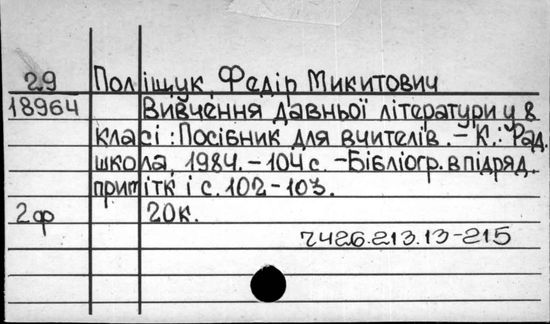 29 Поліщук, Федір Микитович
18964 Вивчення давньої літератури у 8
класі : Посібник для вчителів. – К.: Рад.
школа, 1984. – 104 с. – Бібліогр. в підряд.
примітк і с. 102 – 103.
2 ф 20к.
Ч426.213.13-215